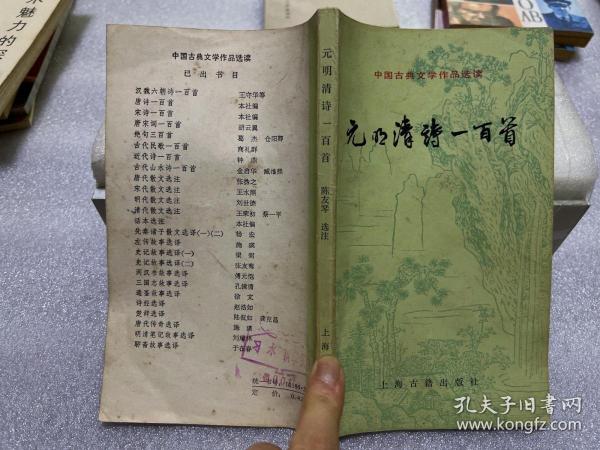 中国古典文学作品选读
已出书目
汉魏六朝诗一百首 王守华等
唐诗一百首 本社编
宋诗一百首 本社编
唐宋词一百首 胡云翼
绝句三百首 葛杰 仓阳卿
古代民歌一百首 商礼群
近代诗一百首 钟鼎
古代山水诗一百首 金启华 臧维熙
唐代散文选注 张㧑之
宋代散文选注 王水照
明代散文选注 刘世德
清代散文选注 王荣初 蔡一平
话本选注 本社编
先秦诸子散文选译(一)(二)
左传故事选译
史记故事选译(一)
史记故事选译(二) 张友鸾
两汉书故事选译 傅元恺
三国志故事选译 孔镜清
通鉴故事选译 徐文
诗经选译 赵浩如
楚辞选译 陆侃如 龚克昌
唐代传奇选译
明清笔记故事选译
聊斋故事选译
定价
元明清诗一百首
陈友琴 选注
上海
中国古典文学作品选读
元明清诗一百首
上海古籍出版社
孔夫子旧书网
www.kongfz.com